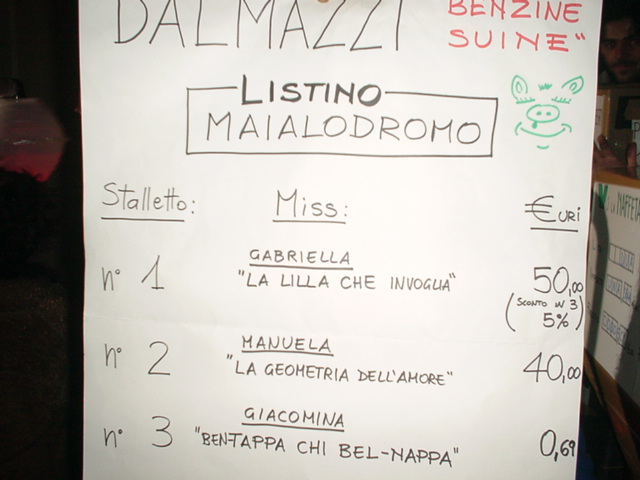 DALMAZZI
BENZINE
SUINE"
LISTINO
MAIALODROMO
Stalletto:
Miss:
€URI
n° 1
GABRIELLA
"LA LILLA CHE INVOGLIA"
50,00
(SCONTO IN 3
5%)
n° 2
MANUELA
"LA GEOMETRIA DELL'AMORE"
40,00
n° 3
GIACOMINA
"BEN-TAPPA CHI BEL-NAPPA"
0,69